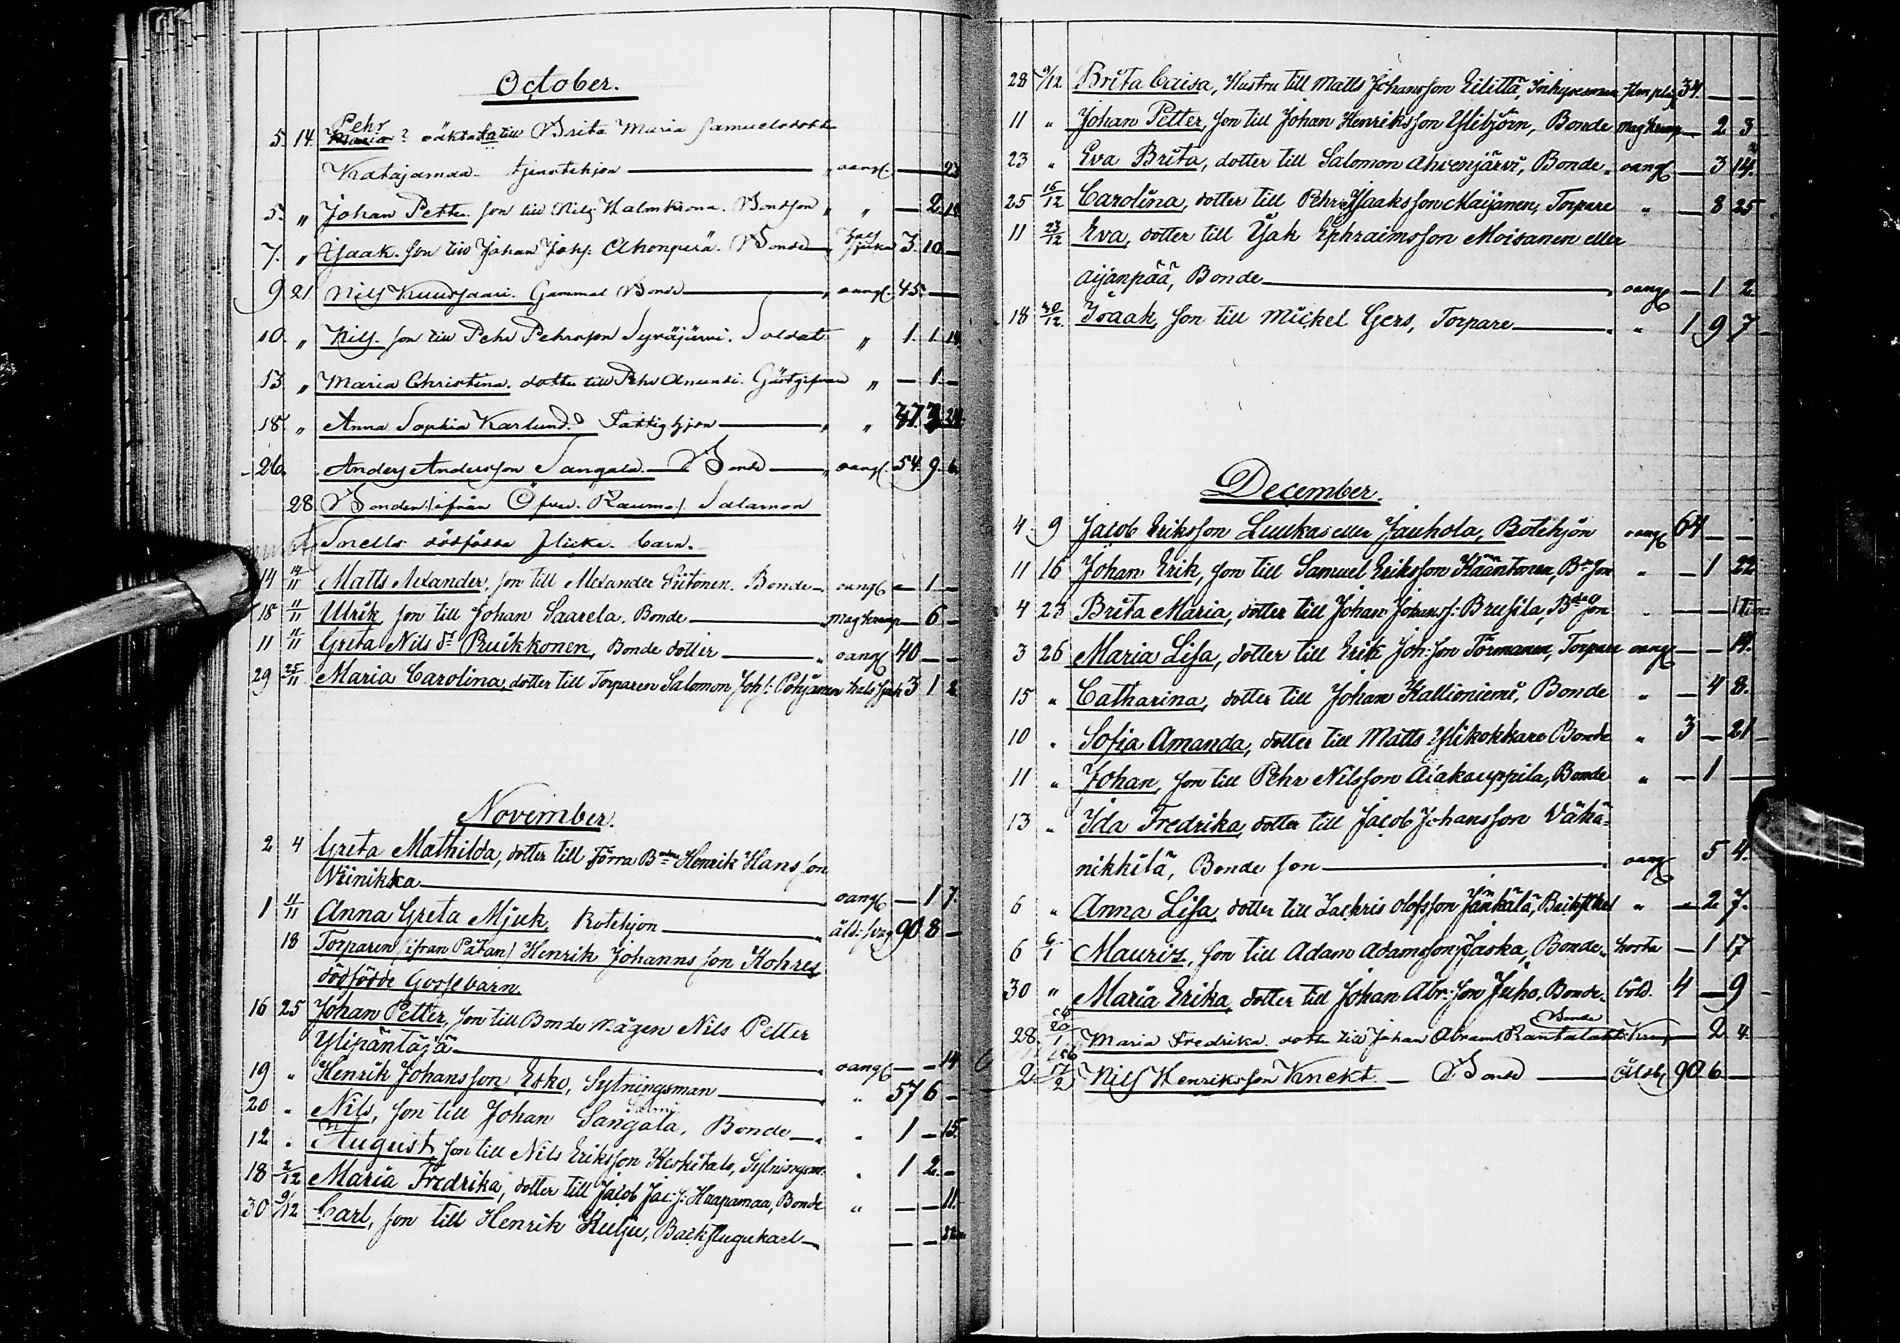 October.
5. 14. Pehr oäkta till Brita Maria Samuelsdotter
Katajamaa tjenstehjon — oang. — — 23
5. " Johan Petter son till Nils Malmkrona. Bondson " " — 2. 14
7. " Isaak. son till Johan Johs. Ahonperä. Bonde 3. 10 —
9. 21 Nils Kuusisaari. Gammal Bonde — oang. 45. — —
10. " Nils. son till Pehr Pehrsson Syväjärvi. Soldat " 1. 1. 14
13. " Maria Christina. dotter till Pehr Anundi. Gästgifvare " — 1. —
18. " Anna Sophia Karlund. Fattighjon — "
26. Anders Andersson Sangala. Bonde — oang. 54. 9. 6.
28 Bonden / ifrån Öfver Raumo / Salamon
Snells dödfödde flicke barn.
14 14/11 Matts Alexander, son till Alexander Siitonen. Bonde — oang — 1 —
18 11/11 Ulrik son till Johan Saarela. Bonde — magkramp — 6 —
11 11/11 Greta Nils dr Ruikkonen, Bonde dotter — oang 40 — —
29 25/11 Maria Carolina, dotter till Torparen Salomon Johs: Pohjanen halssjuk 3 1 2
November.
2 4 Greta Mathilda, dotter till Förra Bonden Henrik Hansson
Niinikka — oang — 1 7.
1 11/11 Anna Greta Mjuk, Rotehjon — åld:svag 90 8 —
18 Torparen / ifrån Päkan / Henrik Johannsson Kohres
dödfödde Gossebarn.
16 25 Johan Petter, son till Bonde mågen Nils Petter
Ylipäntäjä — oang — — 14
19 " Henrik Johansson Esko, Sytningsman — " 57 6 —
20 " Nils, son till Johan Sangala, Bonde — " 1 — 15.
12 " August, son till Nils Eriksson Keskitalo, Sytningsm. " 1 2 —
18 2/12 Maria Fredrika, dotter till Jacob Jac:s: Haapamaa, Bonde " — — 11.
30 9/12 Carl, son till Henrik Kulju, Backstugukarl — — —
28 9/12 Brita Caisa, Hustru till Matts Johansson Eilittä, Inhysesman 34. — —
11 " Johan Petter, son till Johan Henriksson Ylibjörn, Bonde magkramp — 2 3
23 " Eva Brita, dotter till Salomon Ahvenjärvi, Bonde oang — 3 14.
25 16/12 Carolina, dotter till Pehr Isaaksson Maijanen, Torpare " — 8 25
11 23/12 Eva, dotter till Isak Ephraimsson Moisanen eller
Aijanpää, Bonde — oang — 1 2
18 30/12 Isaak, son till Mickel Gers, Torpare — " 1 9 7
December.
4 9 Jacob Eriksson Luukas eller Jauhola, Rotehjon oang 64 — —
11 16 Johan Erik, son till Samuel Eriksson Kääntaren, Bdson " — 1 22
4 23 Brita Maria, dotter till Johan Johans: Brusila, Bdeson " — —
3 26 Maria Lisa, dotter till Erik Joh:son Törmänen, Torpare oang — — 14.
15 " Catharina, dotter till Johan Kallioniemi, Bonde " — 4 8.
10 " Sofia Amanda, dotter till Matts Ylikokkare Bonde " 3 — 21
11 " Johan, son till Pehr Nilsson Alakauppila, Bonde " — 1 —
13 " Ida Fredrika, dotter till Jacob Johansson Vähä-
nikkilä, Bonde son — oang 5 4.
6 " Anna Lisa, dotter till Zachris Olofsson Jänkälä, " — 2 7.
6 6/1 Mauriz, son till Adam Adamsson Jaska, Bonde. hosta — 1 17
30 " Maria Erika, dotter till Johan Abr:son Juho, Bonde. 4 — 9
28 20/1 Maria Fredrika dotter till Johan Abrams Rantalahti Bonde — 2 4
2 17/2 Nils Henriksson Knekt — Bonde — 90 6 —